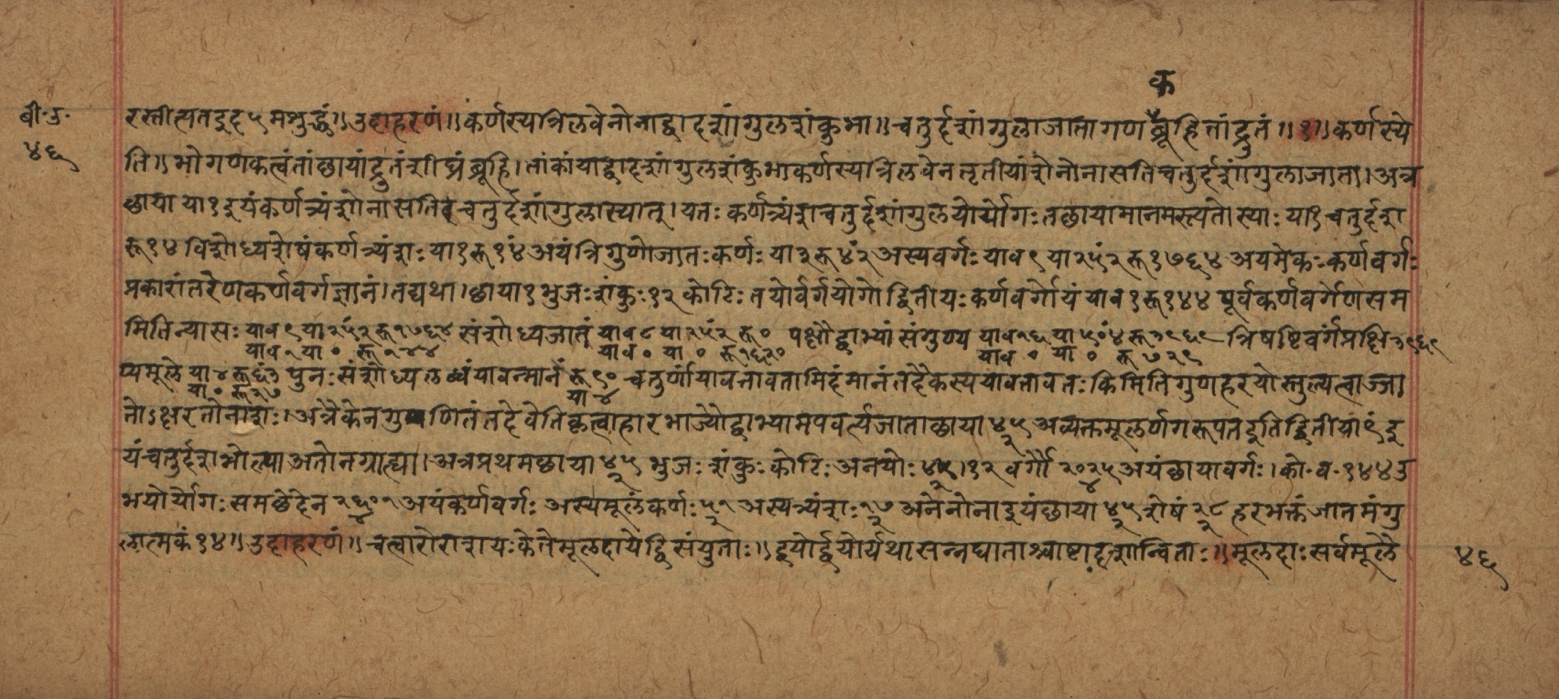 क
बी॰उ॰
४६
रस्तीत्यतदुद५मशुद्धं॥उदाहरणं॥कर्णस्यत्रिलवेनोनाद्वादशांगुलशंकुभा॥चतुर्दशांगुलाजातागणब्रूहितांद्रुतं॥१॥कर्णस्ये
ति॥भोगणकत्वंतांछायांद्रुतंशीघ्रंब्रूहि।तांकांयाद्वादशांगुलशंकुभाकर्णस्यात्रिलवेनतृतीयांशेनोनासतिचतुर्दशांगुलाजाता।अत्र
छायाया१इयंकर्णत्र्यंशोनासतिचतुर्दशांगुलास्यात्।यतःकर्णत्र्यंशचतुर्दशांगुलयोर्योगःतछायामानमस्त्यतोस्याःया१चतुर्दश
रू१४विशोध्यशेषंकर्णत्र्यंशःया१रू१४ंअयंत्रिगुणोजातःकर्णःया३रू४ं२अस्यवर्गःयाव९या२५ं२रू१७६४अयमेकःकर्णवर्गः
प्रकारांतरेणकर्णवर्गज्ञानं।तद्यथा।छाया१भुजःशंकुः१२कोटिःतयोर्वर्गयोगोद्वितीयःकर्णवर्गोयंयाव१रू१४४पूर्वकर्णवर्गेणसम
मितिन्यासःयाव९या२५ं२रू१७६४संशोध्यजातंयाव८या२५ं२रू०पक्षौद्वाभ्यांसंगुण्ययाव१६या५०ं४रू३९६९त्रिषष्टिवर्गंप्रक्षि३९६९
याव१या०रू१४४ याव०या०रू१६२० याव०या०रू७२९
प्यमूलेया४रू६३पुनःसंशोध्यलब्धंयावन्मानंरू९०चतुर्णांयावत्तावतामिदंमानंतदैकस्ययावत्तावतःकिमितिगुणहरयोस्तुल्यत्वाज्जा
या०रू२७ या४
तोऽक्षरतोनाशः।अत्रैकेनगुणितंतदेवेतिकृत्वाहारभाज्योद्वाभ्यामपवर्त्यजाताछाया४५२अव्यक्तमूलर्णगरूपतदुतिद्वितीया९ंइ
यंचतुर्दशभोल्पाअतोनग्राह्या।अत्रप्रथमछाया४५२भुजःशंकुःकोटिःअनयोः४५२।१२वर्गौ२०२५४अयंछायावर्गः।को॰व॰१४४उ
भयोर्योगःसमछेदेन२६०१४अयंकर्णवर्गःअस्यमूलंकर्णः५१२अस्यत्र्यंशः१७२अनेनोनाइयंछाया४५२शेषं२८२हरभक्तंजातमंगु
लात्मकं१४॥उदाहरणं॥चत्वारोराशयःकेतेमूलदायेद्विसंयुताः॥द्वयोर्द्वयोर्यथासन्नघाताश्चाष्टादशान्विताः॥मूलदाःसर्वमूलै
४६